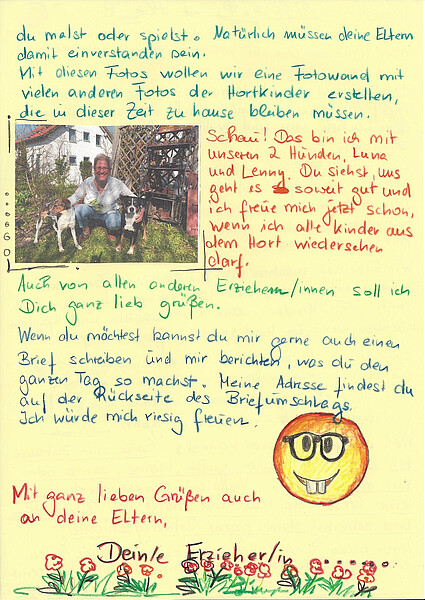 du malst oder spielst. Natürlich müssen deine Eltern
damit einverstanden sein.
Mit diesen Fotos wollen wir eine Fotowand mit
vielen anderen Fotos der Hortkinder erstellen,
die in dieser Zeit zu hause bleiben müssen.
Schau! Das bin ich mit
unseren 2 Hunden, Luna
und Lenny. Du siehst, uns
geht es soweit gut und
ich freue mich jetzt schon,
wenn ich alle Kinder aus
dem Hort wiedersehen
darf.
Auch von allen anderen Erziehern/innen soll ich
Dich ganz lieb grüßen.
Wenn du möchtest kannst du mir gerne auch einen
Brief schreiben und mir berichten, was du den
ganzen Tag so machst. Meine Adresse findest du
auf der Rückseite des Briefumschlags.
Ich würde mich riesig freuen.
Mit ganz lieben Grüßen auch
an deine Eltern,
Dein/e Erzieher/in ........